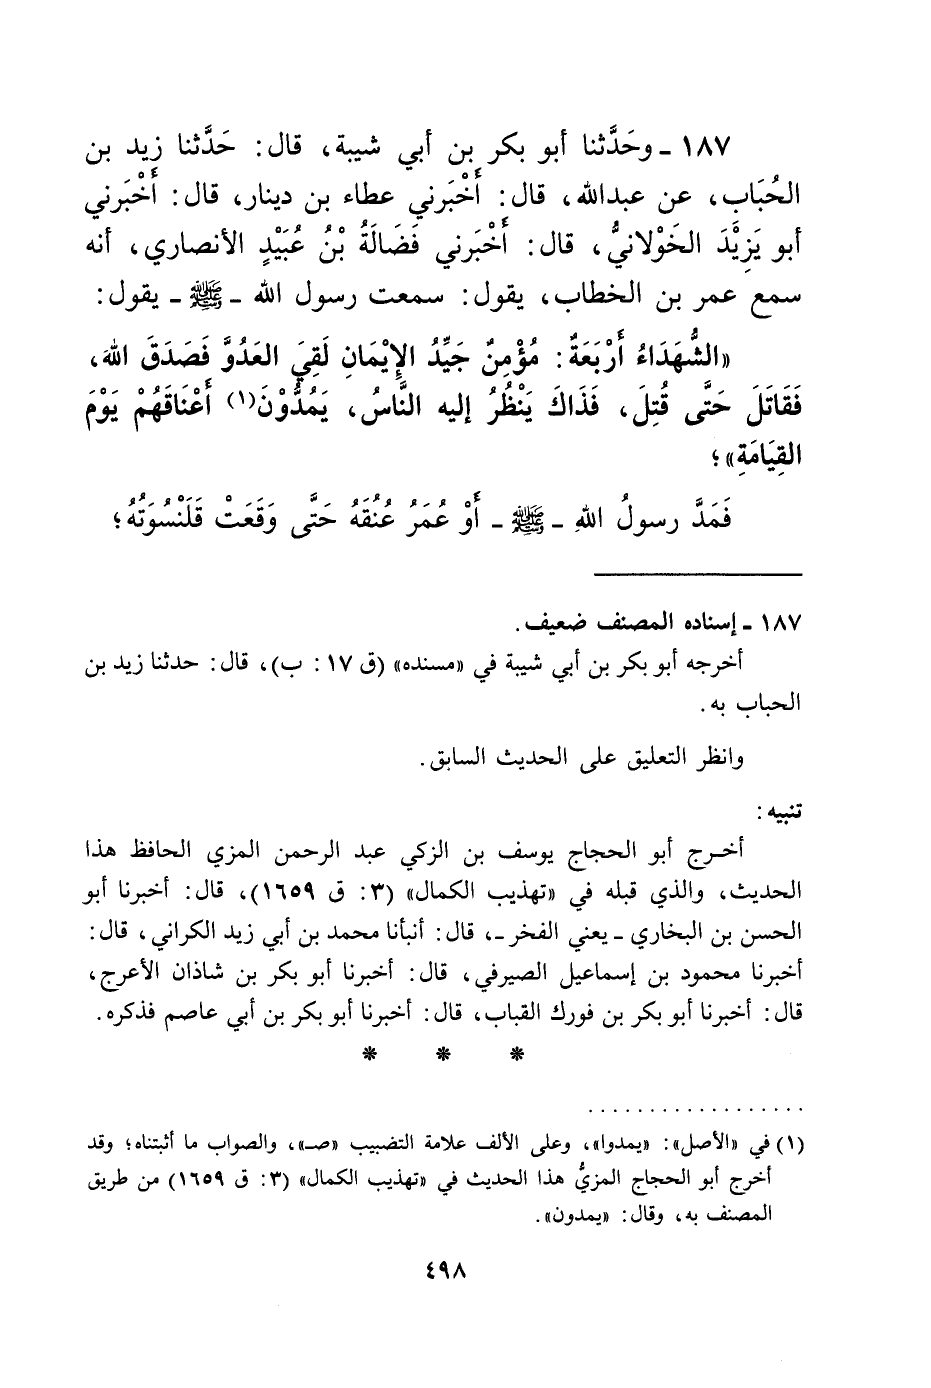 ١٨٧ ـ وحَدَّثنا أبو بكر بن أبي شيبة، قال: حَدَّثنا زيد بن
الحُبَاب، عن عبدالله، قال: أَخْبَرني عطاء بن دينار، قال: أَخْبَرني
أبو يَزِيْدَ الخَوْلانيُّ، قال: أَخْبَرني فَضَالَةُ بْنُ عُبَيْدٍ الأنصاري، أنه
سمع عمر بن الخطاب، يقول: سمعت رسول الله ـ ﷺ ـ يقول:
«الشُّهَدَاءُ أَرْبَعَةٌ: مُؤْمِنٌ جَيِّدُ الإِيْمَانِ لَقِيَ العَدُوَّ فَصَدَقَ اللهَ،
فَقَاتَلَ حَتَّى قُتِلَ، فَذَاكَ يَنْظُرُ إليه النَّاسُ، يَمُدُّوْنَ(١) أَعْنَاقَهُمْ يَوْمَ
القِيَامَةِ»؛
فَمَدَّ رسولُ اللهِ ـ ﷺ ـ أَوْ عُمَرُ عُنُقَهُ حَتَّى وَقَعَتْ قَلَنْسُوَتُهُ؛
١٨٧ ـ إسناده المصنف ضعيف.
أخرجه أبو بكر بن أبي شيبة في «مسنده» (ق ١٧ : ب)، قال: حدثنا زيد بن
الحباب به.
وانظر التعليق على الحديث السابق.
تنبيه:
أخرج أبو الحجاج يوسف بن الزكي عبد الرحمن المزي الحافظ هذا
الحديث، والذي قبله في «تهذيب الكمال» (٣: ق ١٦٥٩)، قال: أخبرنا أبو
الحسن بن البخاري ـ يعني الفخر ـ، قال: أنبأنا محمد بن أبي زيد الكراني، قال:
أخبرنا محمود بن إسماعيل الصيرفي، قال: أخبرنا أبو بكر بن شاذان الأعرج،
قال: أخبرنا أبو بكر بن فورك القباب، قال: أخبرنا أبو بكر بن أبي عاصم فذكره.
* * *
(١) في «الأصل»: «يمدوا»، وعلى الألف علامة التضبيب «صـ»، والصواب ما أثبتناه؛ وقد
أخرج أبو الحجاج المزيُّ هذا الحديث في «تهذيب الكمال» (٣: ق ١٦٥٩) من طريق
المصنف به، وقال: «يمدون».
٤٩٨